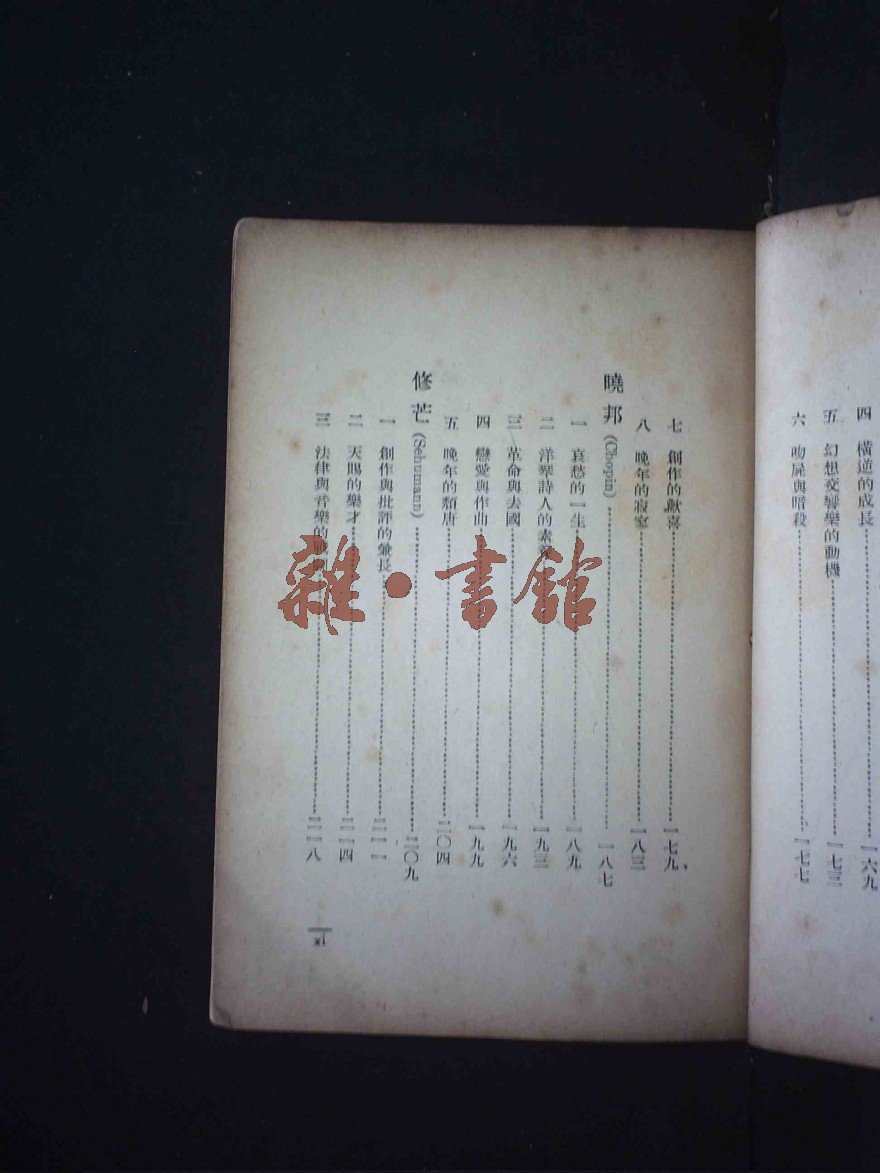 四 橫逆的成長 一六九
五 幻想交響樂的動機 一七三
六 吻屍與暗殺 一七七
七 創作的歡喜 一七九
八 晚年的寂寞 一八三
曉邦 (Chopin) 一八七
一 哀愁的一生 一八九
二 洋琴詩人的素 一九三
三 革命與去國 一九六
四 戀愛與作曲 一九九
五 晚年的頹唐 二〇四
修芒 (Schumann) 二〇九
一 創作與批評的兼長 二一一
二 天賜的樂才 二一四
三 法律與音樂的 二一八
xi
雜·書館